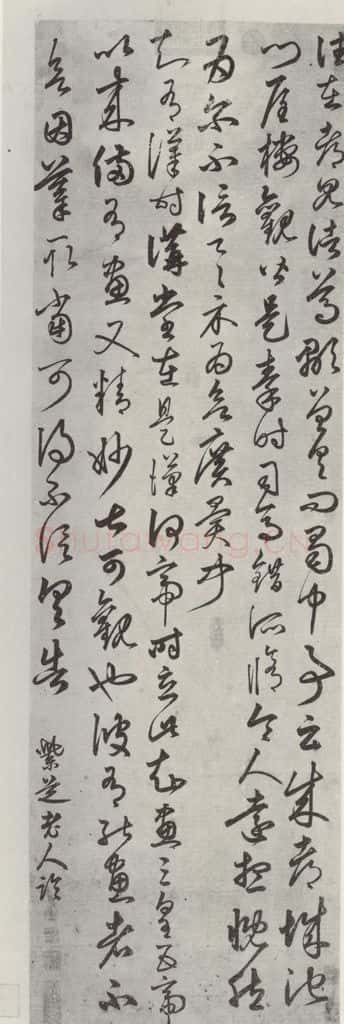 往在都見諸葛顒曾具問蜀中事云成都城池
門屋樓觀皆是秦時司馬錯所脩令人遠想慨然
為爾不信一一示為欲廣異聞
知有漢時講堂在是漢何帝時立此知畫三皇五帝
以來備有畫又精妙甚可觀也彼有能畫者不
欲因摹取當可得不須具告
紫芝老人臨
Shufawang.CN